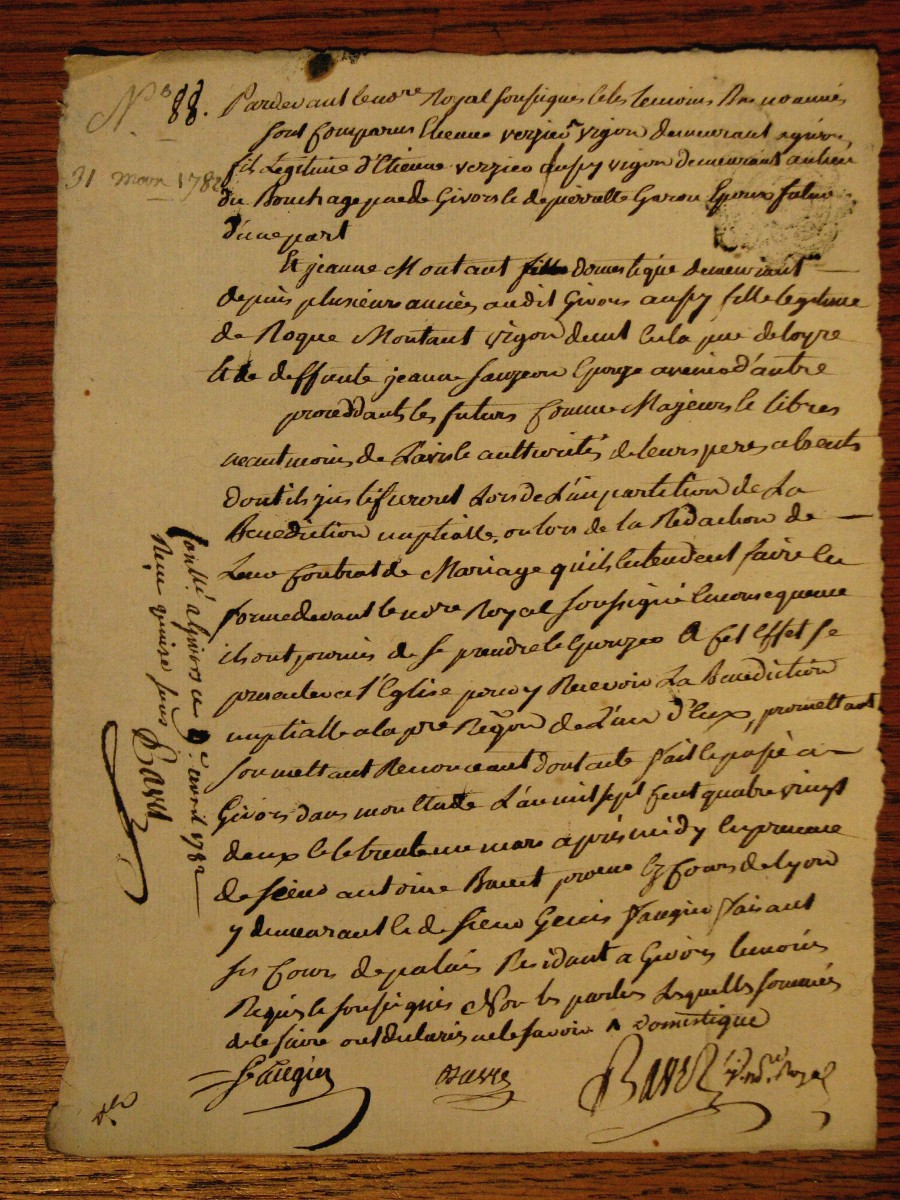 N° 88.
31 mars 1782
Pardevant le no.re Royal soussigné et les temoins Bas nommés
sont Comparus Etienne verzieu vigon demeurant a givors
fils Legitime d'Etienne verzieu aussy vigon demeurant au lieu
du Bouchage p.sse de Givors et de pierrette Garon Epoux futur
d'une part
Et jeanne Montant domestique demeurant
depuis plusieurs années audit Givors aussy fille legitime
de Roque Montant vigon de la p.sse de loyre
et de deffunte jeanne Epouze avenir d'autre
proceddants les futurs Comme Majeurs et libres
neantmoins de L'avis et authorité de leurs peres absents
dont ils justifieront Lors de L'impartition de La
Benediction nuptialle, ou lors de la Redaction de
Leur Contrat de Mariage qu'ils entendent faire en
forme devant le no.re Royal soussigné en consequence
ils ont promis de se prendre et Epouzer A Cet Effet se
presenter a l'Eglise pour y Recevoir La Benediction
nuptialle a la p.re Req.on de L'un d'Eux, promettant
soumettant Renonceant dont acte fait et passé a
Givors dans mon Etude L'an mil sept Cent quatre vingt
deux et le trente un mars après midy En presence
de sieur antoine Bavet Ez Cours de Lyon
y demeurant et de sieur Genis faugier faisant
ses Cours de palais Residant a Givors temoins
Requis et soussignés Non les parties Lesquelles sommées
de le faire ont declaré ne le savoir Domestique
faugier
Bavet
Bavet no.re Royal
Con.llé a Givors ce 9.e avril 1782
Reçu quinze sous
Bavet